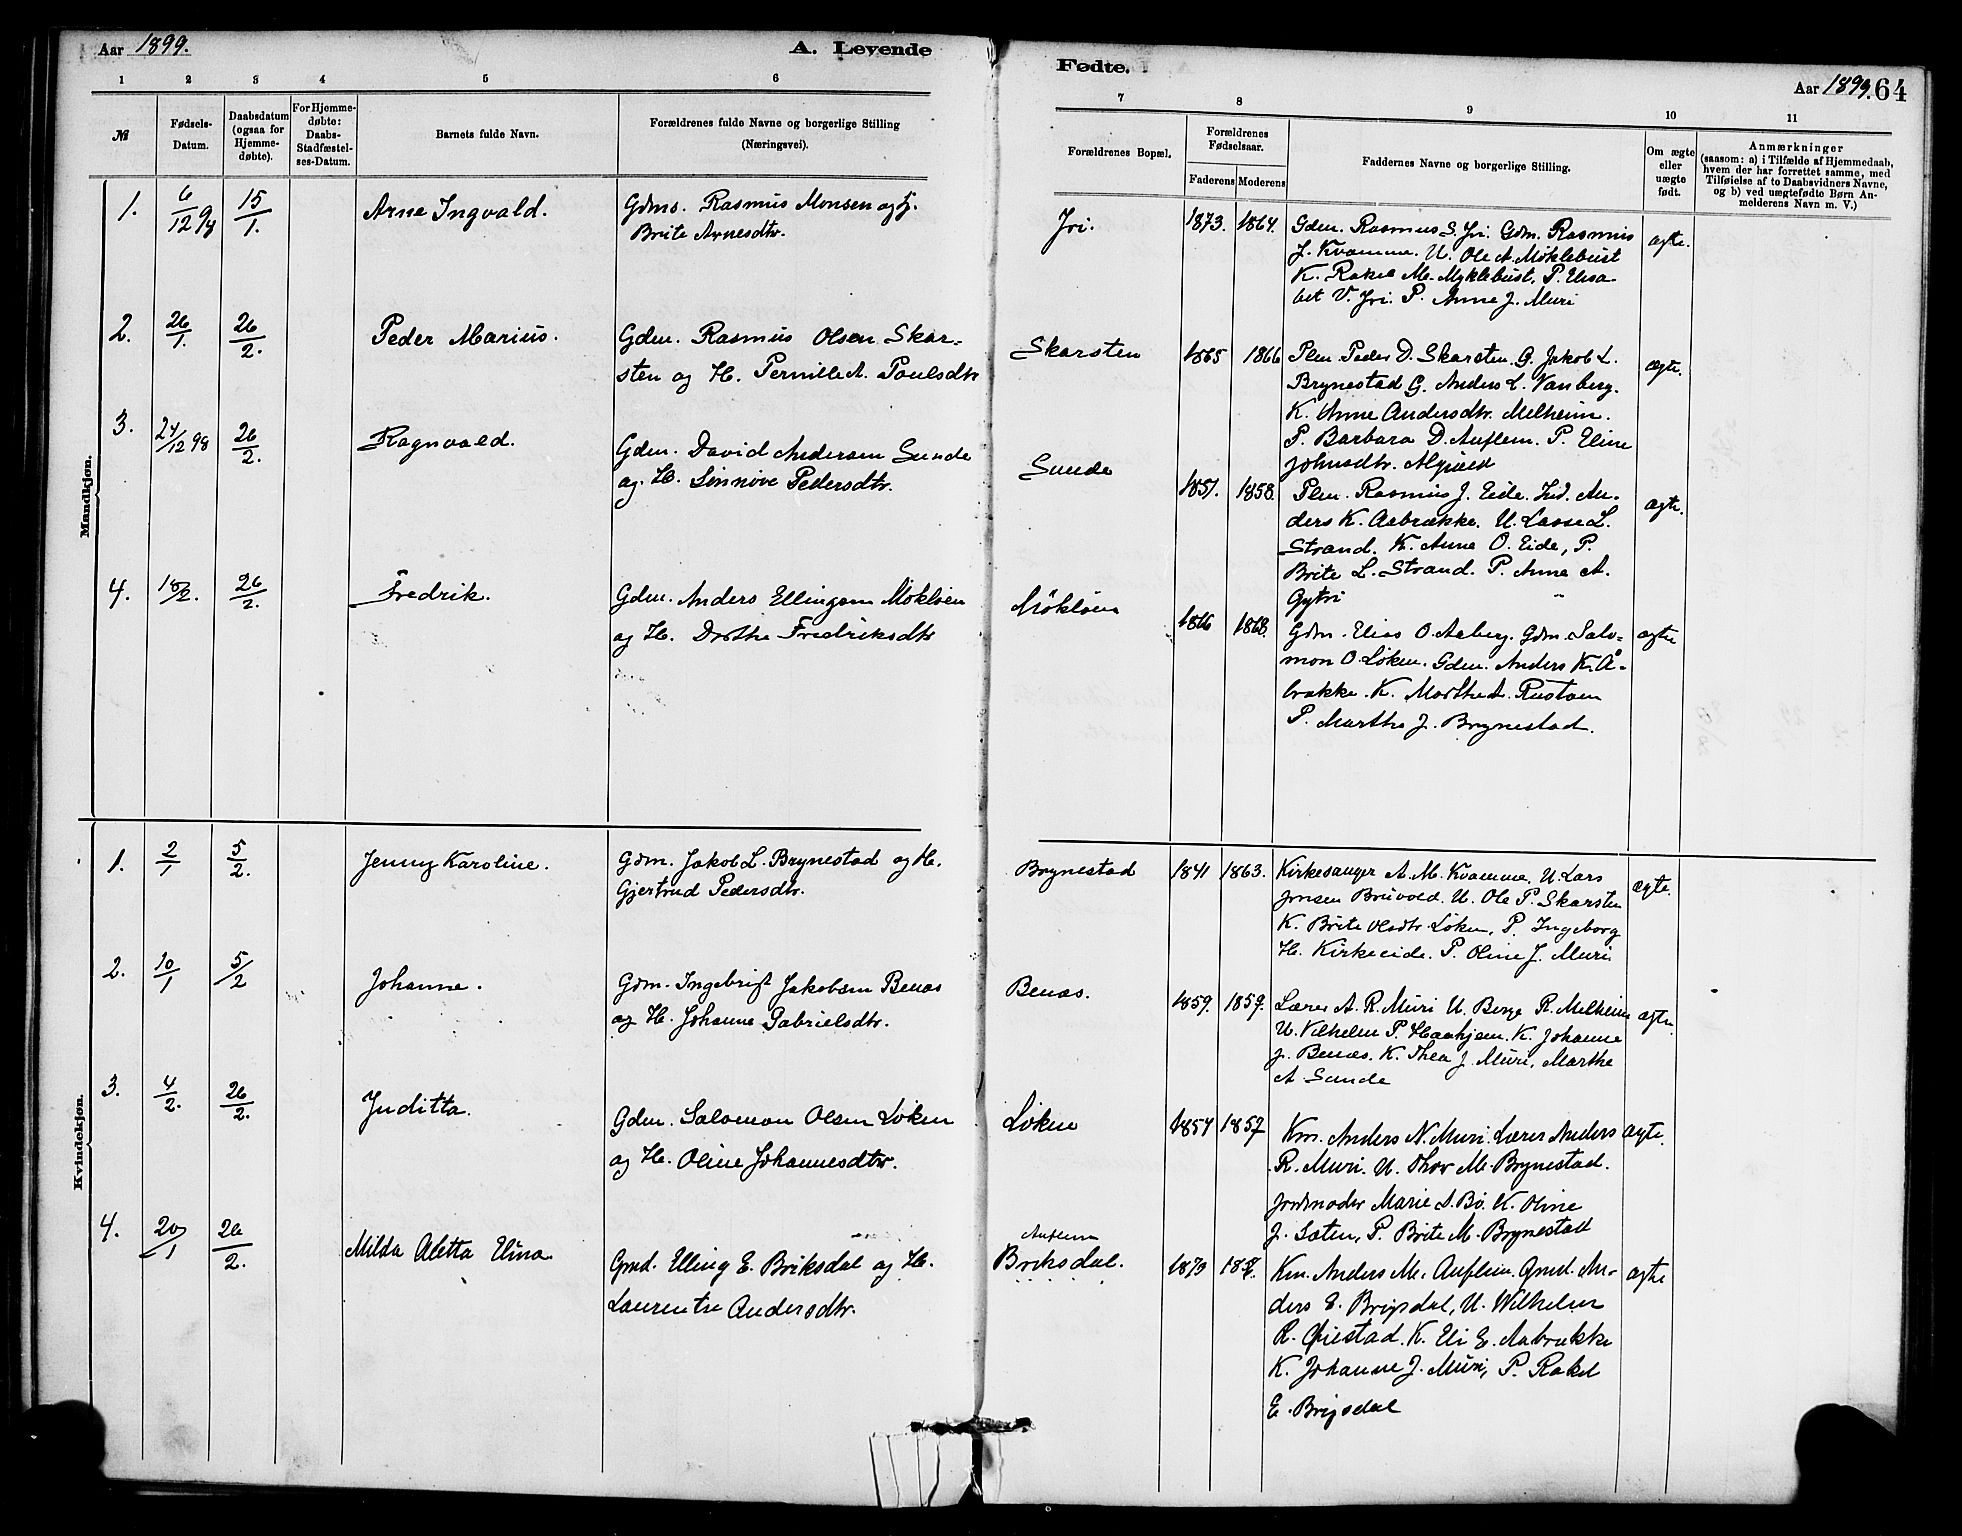 Aar 1899.
A. Levende
1 2 3 4 5 6
№
Fødsels-
Datum.
Daabsdatum
(ogsaa for
Hjemme-
døbte).
For Hjemme-
døbte:
Daabs-
Stadfæstel-
ses-Datum.
Barnets fulde Navn.
Forældrenes fulde Navne og borgerlige Stilling
(Næringsvei).
Mandkjøn.
1. 6/12 98 15/1. Arne Ingvald. Gdms. Rasmus Monsen og H.
Brite Arnesdtr.
2. 26/1. 26/2. Peder Marius. Gdm. Rasmus Olsen Skar-
sten og H. Pernille A. Poulsdtr
3. 24/12 98 26/2. Ragnvald. Gdm. David Andersen Sunde
og H. Sønnøve Pedersdtr.
4. 10/2. 26/2. Fredrik. Gdm. Anders Ellingsen Mökløen
og H. Dorthe Fredriksdtr
Kvindekjøn.
1. 2/1 5/2. Jenny Karoline. Gdm. Jakob L. Brynestad og H.
Gjertrud Pedersdtr.
2. 10/1 5/2 Johanne. Gdm. Ingebrigt Jakobsen Benæs
og H. Johanne Gabrielsdtr.
3. 4/2. 26/2. Juditta. Gdm. Salomon Olsen Løken
og H. Oline Johannesdtr.
4. 20/1 26/2. Milda Aletta Elina Gmd. Elling E. Briksdal og H.
Laurentse Andersdtr.
Fødte.
Aar 1899. 64
7 8 9 10 11
Forældrenes Bopæl.
Forældrenes
Fødselsaar.
Faderens Moderens
Faddernes Navne og borgerlige Stilling.
Om ægte
eller
uægte
født.
Anmærkninger
(saasom: a) i Tilfælde af Hjemmedaab,
hvem der har forrettet samme, med
Tilføielse af to Daabsvidners Navne,
og b) ved uægtefødte Børn An-
melderens Navn m. V.)
Jri. 1873. 1864. Gdm. Rasmus S. Jri. Gdm. Rasmus ægte.
J. Kvamme. U. Ole A. Møklebust
K. Rakel M. Myklebust, P. Elisa-
bet V. Jri. P. Anne J. Muri
Skarsten 1865 1866 Plm. Peder D. Skarsten. G. Jakob L. ægte.
Brynestad G. Anders L. Vanberg.
K. Anne Andersdtr. Melheim.
P. Barbara D. Auflem. P. Eline
Johnsdtr.
Sunde 1857. 1858. Plm. Rasmus J. Eide. Ind. An- ægte.
ders K. Aabrække. U. Lasse L.
Strand. K. Anne O. Eide, P.
Brite L. Strand. P. Anne A.
Gytri
Mökløen 1866 1868. Gdm. Elias O. Aaberg. Gdm. Salo- ægte
mon O. Løken. Gdm. Anders K. Å-
brække. K. Marthe A. Rustøen
P. Marthe J. Brynestad.
Brynestad 1841 1863. Kirkesanger A. M. Kvamme. U. Lars ægte.
Jonsen Bruvold. U. Ole P. Skarsten
K. Brite Olsdtr. Løken, P. Ingeborg
H. Kirkeeide. P. Oline J. Muri
Benæs. 1859. 1859. Lærer A. R. Muri U. Berge R. Melheim ægte.
U. Vilhelm P. Haahjem. K. Johanne
J. Benæs. K. Thea J. Muri, Marthe
A. Sunde
Løken 1854 1857 Km. Anders N. Muri. Lærer Anders ægte.
R. Muri. U. Thor M. Brynestad.
Jordmoder Marie A. Bö. K. Oline
J. Sæten, P. Brite M. Brynestad
Auflem
Briksdal. 1873 Km. Anders M. Auflem. Gmd. An- ægte
ders E. Brigsdal, U. Wilhelm
R. Øiestad. K. Eli E. Aabrække
K. Johanne J. Muri, P. Rakel
E. Brigsdal